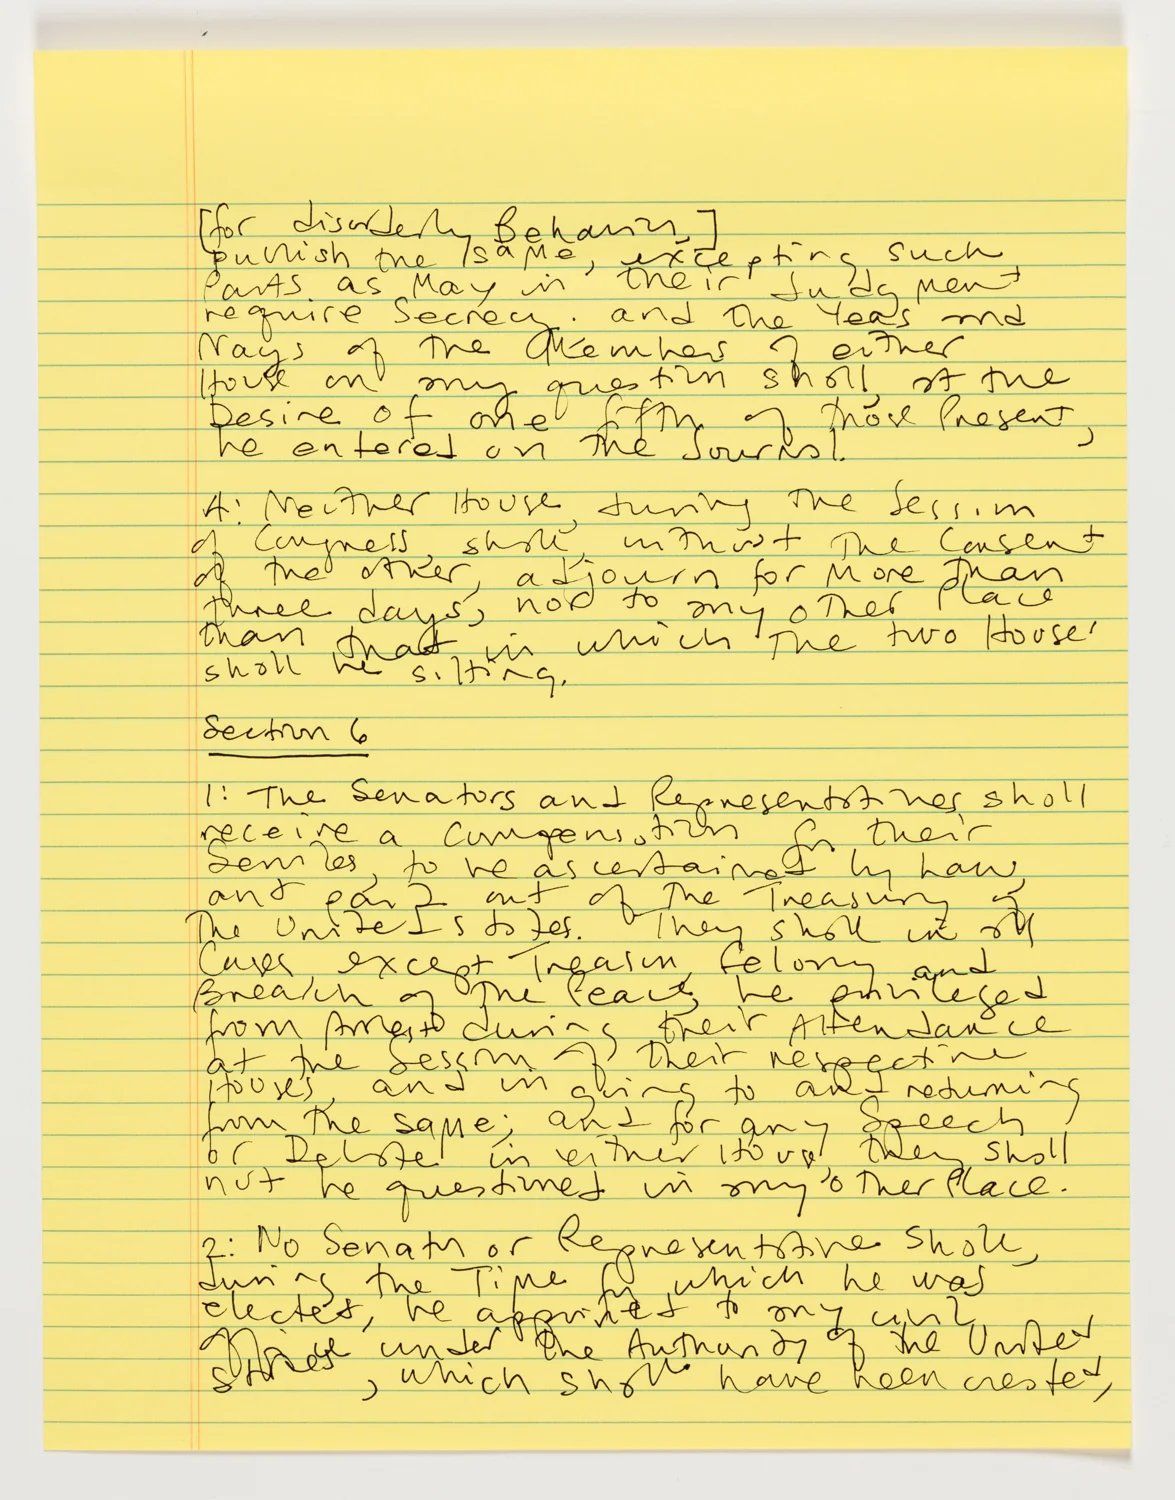 [for disorderly Behavior,]
publish the same, excepting such
Parts as May in their Judgment
require Secrecy. and the Yeas and
Nays of the Members of either
House on any question shall at the
Desire of one fifth of those Present,
be entered on the Journal.
4: Neither House, during the Session
of Congress, shall, without the Consent
of the other, adjourn for More than
three days, nor to any other Place
than that in which the two Houses
shall be sitting.
Section 6
1: The Senators and Representatives shall
receive a Compensation for their
Services, to be ascertained by Law,
and paid out of the Treasury of
The United States. They shall in all
Cases, except Treason, Felony and
Breach of the Peace, be privileged
from Arrest during their Attendance
at the Session of their respective
Houses, and in going to and returning
from the same; and for any Speech
or Debate in either House, they shall
not be questioned in any other Place.
2: No Senator or Representative shall,
during the Time for which he was
elected, be appointed to any civil
Office under the Authority of the United
States, which shall have been created,